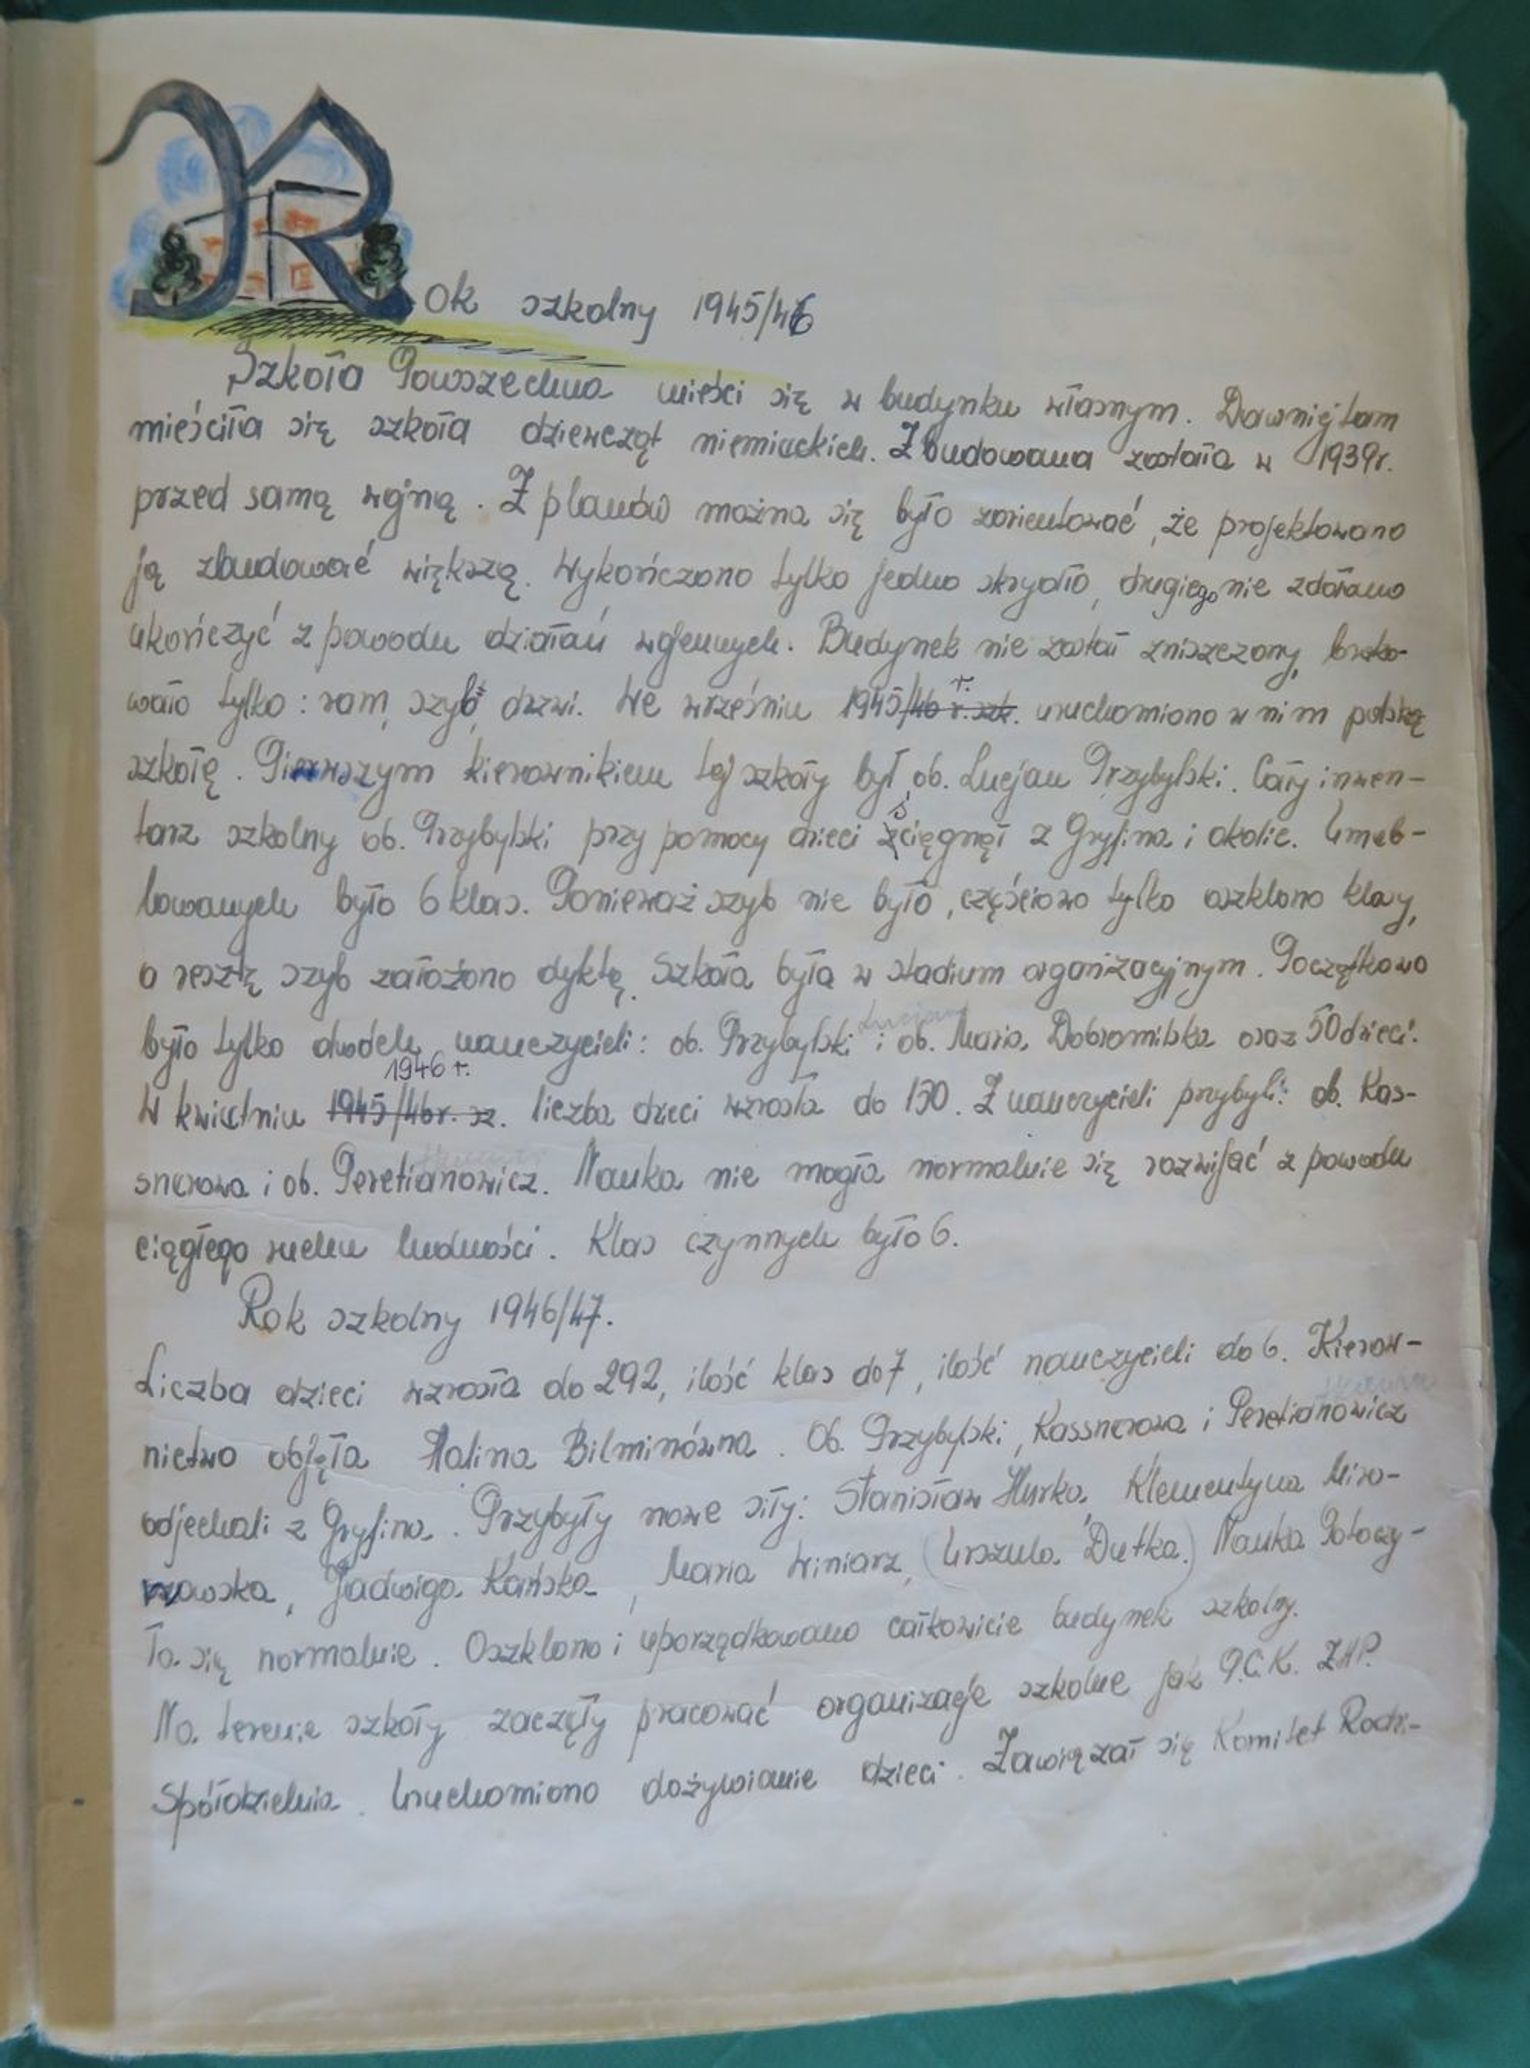 Rok szkolny 1945/46
Szkoła Powszechna mieści się w budynku własnym. Dawniej tam
mieściła się szkoła dziewcząt niemieckich. Zbudowana została w 1939r.
przed samą wojną. Z planów można się było zorientować, że projektowano
ją zbudować większą. Wykończono tylko jedno skrzydło, drugiego nie zdołano
ukończyć z powodu działań wojennych. Budynek nie został zniszczony, brako-
wało tylko: ram, szyb, drzwi. We wrześniu 1945/46 r. szk. r. uruchomiono w nim polską
szkołę. Pierwszym kierownikiem tej szkoły był ob. Lucjan Przybylski. Cały inwen-
tarz szkolny ob. Przybylski przy pomocy dzieci ściągnął z Gryfina i okolic. Umeb-
lowanych było 6 klas. Ponieważ szyb nie było, częściowo tylko oszklono klasy,
a resztę szyb założono dyktę. Szkoła była w stadium organizacyjnym. Początkowo
było tylko dwóch nauczycieli: ob. Przybylski Lucjan i ob. Maria Dobromilska oraz 50 dzieci.
W kwietniu 1945/46r. sz. 1946 r. liczba dzieci wzrosła do 150. Z nauczycieli przybyli: ob. Kas-
snerowa i ob. Peretianowicz. Nauka nie mogła normalnie się rozwijać z powodu
ciągłego ruchu ludności. Klas czynnych było 6.
Rok szkolny 1946/47.
Liczba dzieci wzrosła do 292, ilość klas do 7, ilość nauczycieli do 6. Kierow-
nictwo objęła Halina Bilminówna. Ob. Przybylski, Kassnerowa i Peretianowicz
odjechali z Gryfina. Przybyły nowe siły: Stanisław Hurko, Klementyna Miro-
Jadwiga Kańska, Maria Winiarz, (Urszula Dutka.) Nauka potoczy-
ła się normalnie. Oszklono i uporządkowano całkowicie budynek szkolny.
Na terenie szkoły zaczęły pracować organizacje szkolne jak P.C.K. ZHP.
Spółdzielnia. Uruchomiono dożywianie dzieci. Zawiązał się Komitet Rodzi-